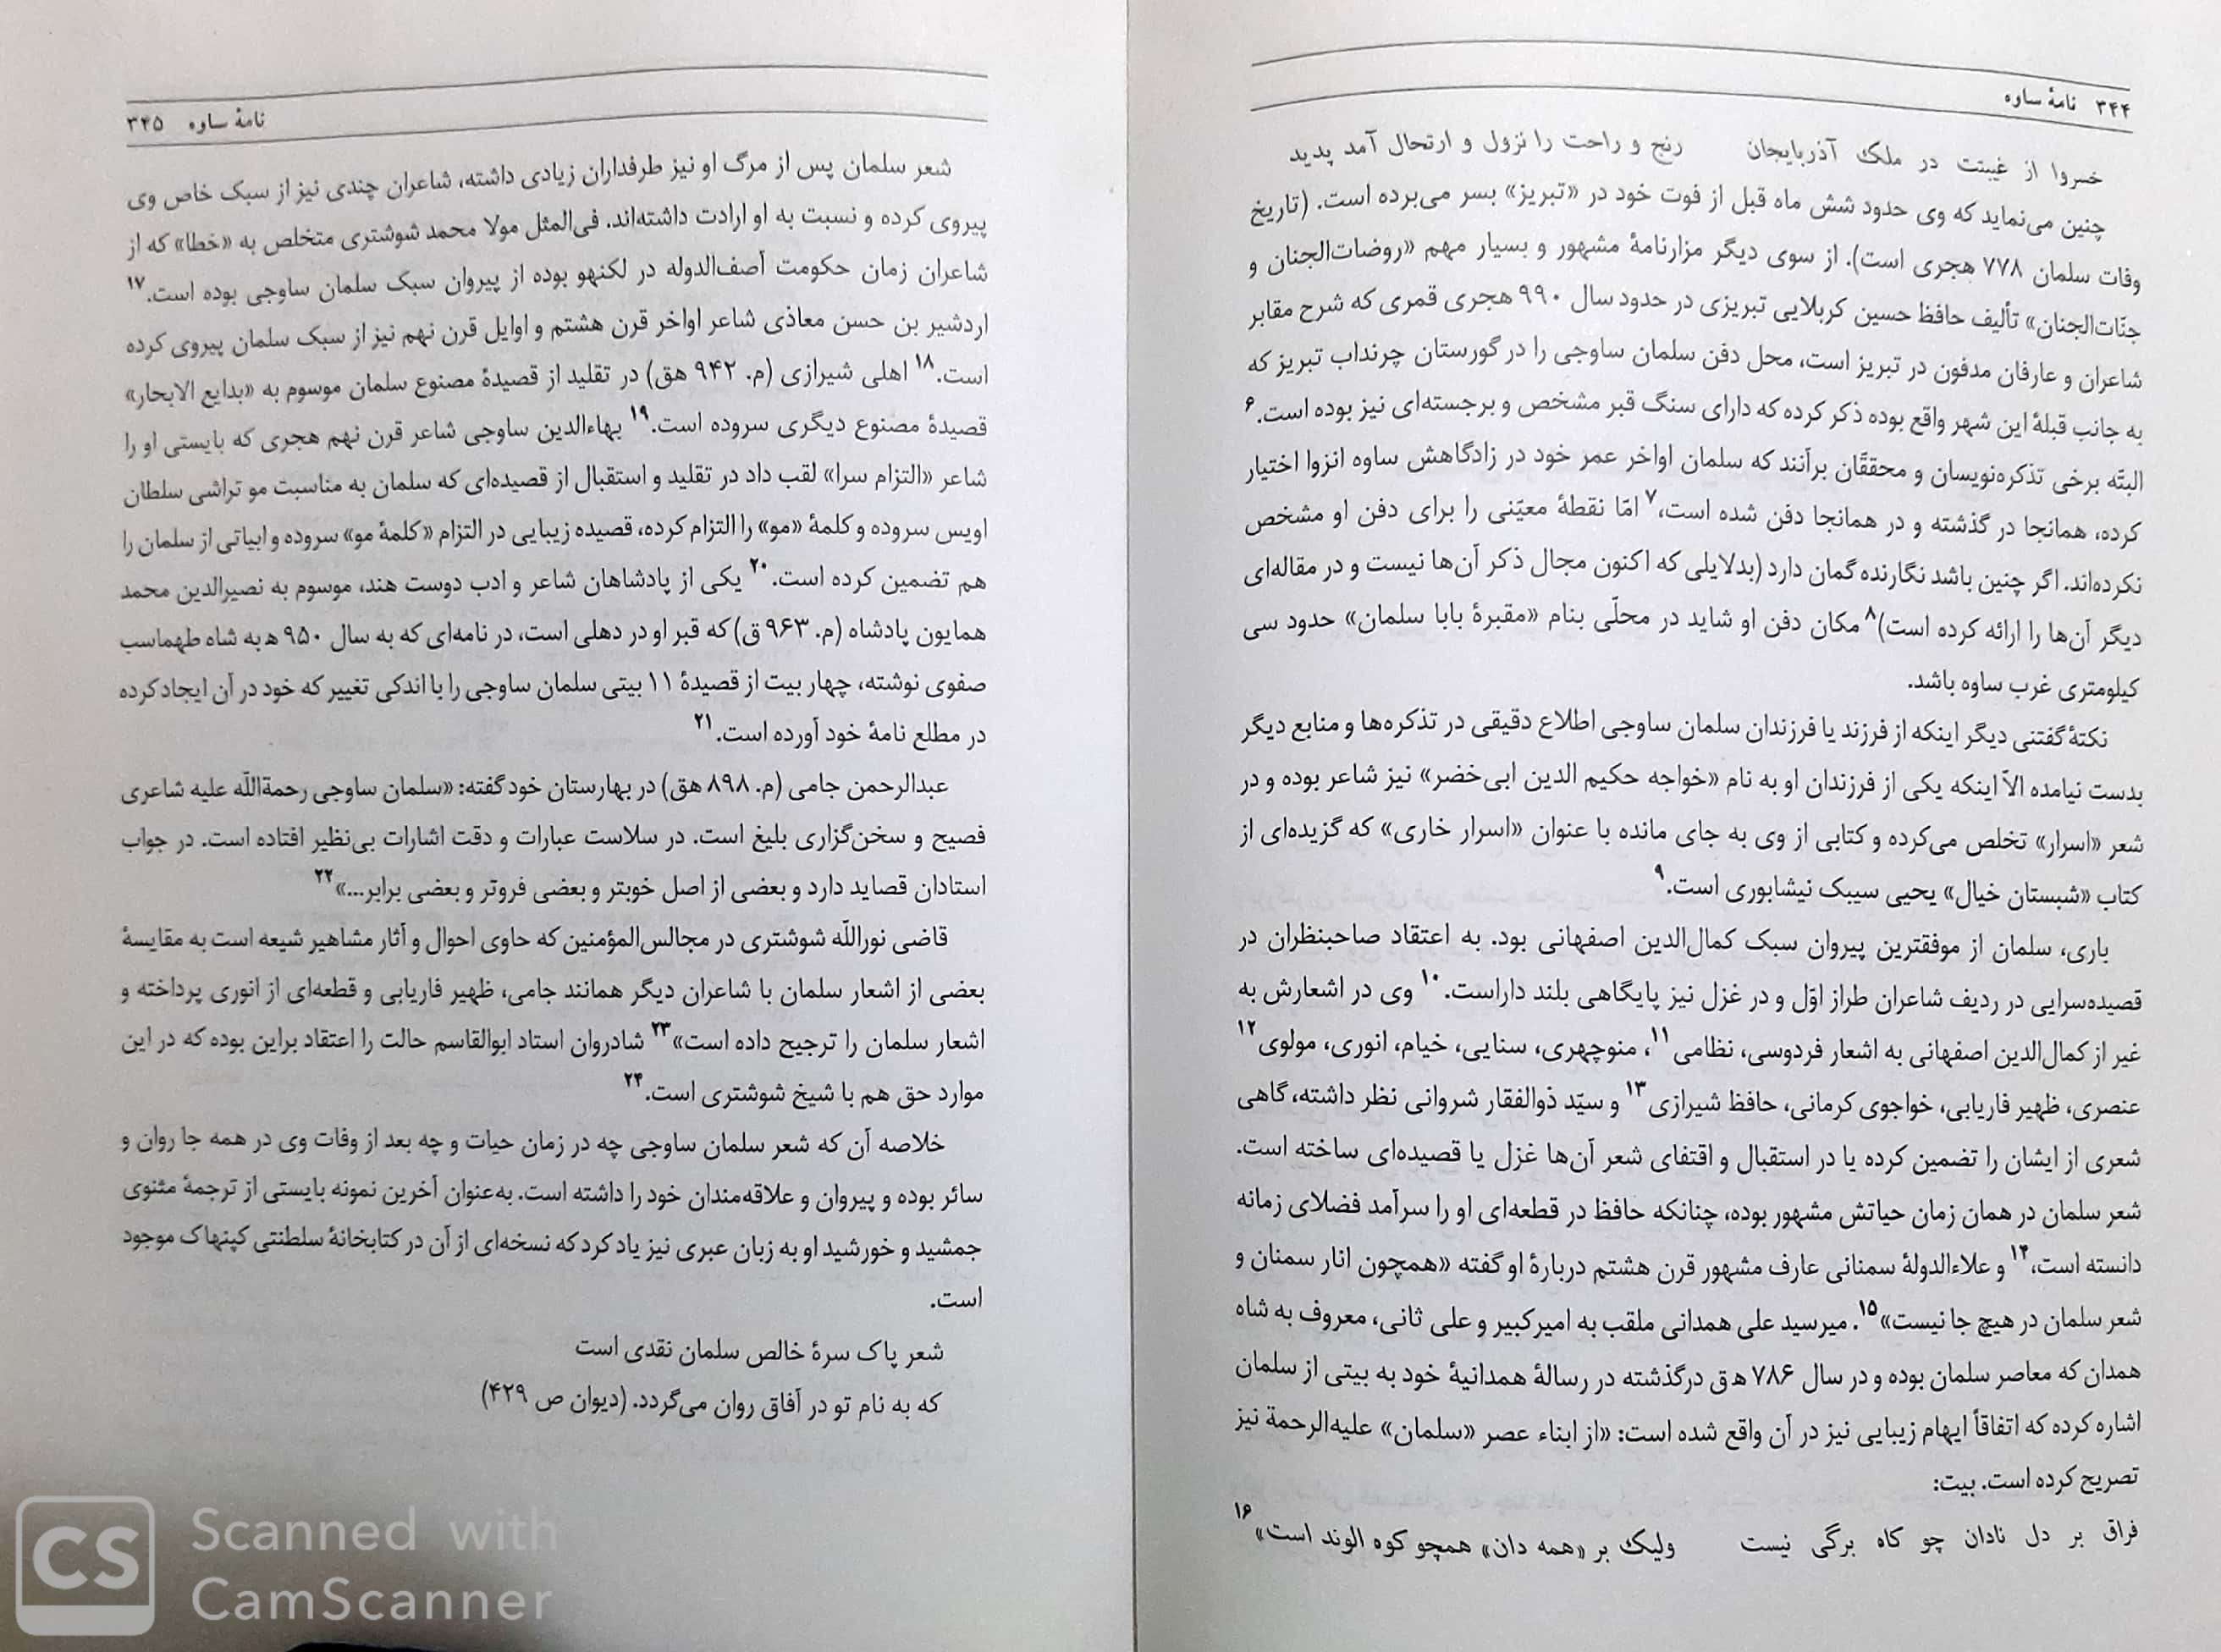 ۳۴۴ نامهٔ ساوه
خسروا از غیبتت در ملک آذربایجان رنج و راحت را نزول و ارتحال آمد پدید
چنین می‌نماید که وی حدود شش ماه قبل از فوت خود در «تبریز» بسر می‌برده است. (تاریخ
وفات سلمان ۷۷۸ هجری است). از سوی دیگر مزارنامهٔ مشهور و بسیار مهم «روضات‌الجنان و
جنّات‌الجنان» تألیف حافظ حسین کربلایی تبریزی در حدود سال ۹۹۰ هجری قمری که شرح مقابر
شاعران و عارفان مدفون در تبریز است، محل دفن سلمان ساوجی را در گورستان چرنداب تبریز که
به جانب قبلهٔ این شهر واقع بوده ذکر کرده که دارای سنگ قبر مشخص و برجسته‌ای نیز بوده است.۶
البتّه برخی تذکره‌نویسان و محققّان برآنند که سلمان اواخر عمر خود در زادگاهش ساوه انزوا اختیار
کرده، همانجا در گذشته و در همانجا دفن شده است،۷ امّا نقطهٔ معیّنی را برای دفن او مشخص
نکرده‌اند. اگر چنین باشد نگارنده گمان دارد (بدلایلی که اکنون مجال ذکر آن‌ها نیست و در مقاله‌ای
دیگر آن‌ها را ارائه کرده است)۸ مکان دفن او شاید در محلّی بنام «مقبرهٔ بابا سلمان» حدود سی
کیلومتری غرب ساوه باشد.
نکتهٔ گفتنی دیگر اینکه از فرزند یا فرزندان سلمان ساوجی اطلاع دقیقی در تذکره‌ها و منابع دیگر
بدست نیامده الاّ اینکه یکی از فرزندان او به نام «خواجه حکیم الدین ابی‌خضر» نیز شاعر بوده و در
شعر «اسرار» تخلص می‌کرده و کتابی از وی به جای مانده با عنوان «اسرار خاری» که گزیده‌ای از
کتاب «شبستان خیال» یحیی سیبک نیشابوری است.۹
باری، سلمان از موفقترین پیروان سبک کمال‌الدین اصفهانی بود. به اعتقاد صاحبنظران در
قصیده‌سرایی در ردیف شاعران طراز اوّل و در غزل نیز پایگاهی بلند داراست.۱۰ وی در اشعارش به
غیر از کمال‌الدین اصفهانی به اشعار فردوسی، نظامی۱۱، منوچهری، سنایی، خیام، انوری، مولوی۱۲
عنصری، ظهیر فاریابی، خواجوی کرمانی، حافظ شیرازی۱۳ و سیّد ذوالفقار شروانی نظر داشته، گاهی
شعری از ایشان را تضمین کرده یا در استقبال و اقتفای شعر آن‌ها غزل یا قصیده‌ای ساخته است.
شعر سلمان در همان زمان حیاتش مشهور بوده، چنانکه حافظ در قطعه‌ای او را سرآمد فضلای زمانه
دانسته است،۱۴ و علاءالدولهٔ سمنانی عارف مشهور قرن هشتم دربارهٔ او گفته «همچون انار سمنان و
شعر سلمان در هیچ جا نیست»۱۵. میرسید علی همدانی ملقب به امیرکبیر و علی ثانی، معروف به شاه
همدان که معاصر سلمان بوده و در سال ۷۸۶ ه‍ ق درگذشته در رسالهٔ همدانیهٔ خود به بیتی از سلمان
اشاره کرده که اتفاقاً ایهام زیبایی نیز در آن واقع شده است: «از ابناء عصر «سلمان» علیه‌الرحمة نیز
تصریح کرده است. بیت:
فراق بر دل نادان چو کاه برگی نیست ولیک بر «همه دان» همچو کوه الوند است»۱۶
نامهٔ ساوه ۳۴۵
شعر سلمان پس از مرگ او نیز طرفداران زیادی داشته، شاعران چندی نیز از سبک خاص وی
پیروی کرده و نسبت به او ارادت داشته‌اند. فی‌المثل مولا محمد شوشتری متخلص به «خطا» که از
شاعران زمان حکومت آصف‌الدوله در لکنهو بوده از پیروان سبک سلمان ساوجی بوده است.۱۷
اردشیر بن حسن معاذی شاعر اواخر قرن هشتم و اوایل قرن نهم نیز از سبک سلمان پیروی کرده
است.۱۸ اهلی شیرازی (م. ۹۴۲ هق) در تقلید از قصیدهٔ مصنوع سلمان موسوم به «بدایع الابحار»
قصیدهٔ مصنوع دیگری سروده است.۱۹ بهاءالدین ساوجی شاعر قرن نهم هجری که بایستی او را
شاعر «التزام سرا» لقب داد در تقلید و استقبال از قصیده‌ای که سلمان به مناسبت مو تراشی سلطان
اویس سروده و کلمهٔ «مو» را التزام کرده، قصیده زیبایی در التزام «کلمهٔ مو» سروده و ابیاتی از سلمان را
هم تضمین کرده است.۲۰ یکی از پادشاهان شاعر و ادب دوست هند، موسوم به نصیرالدین محمد
همایون پادشاه (م. ۹۶۳ ق) که قبر او در دهلی است، در نامه‌ای که به سال ۹۵۰ ه‍ به شاه طهماسب
صفوی نوشته، چهار بیت از قصیدهٔ ۱۱ بیتی سلمان ساوجی را با اندکی تغییر که خود در آن ایجاد کرده
در مطلع نامهٔ خود آورده است.۲۱
عبدالرحمن جامی (م. ۸۹۸ هق) در بهارستان خود گفته: «سلمان ساوجی رحمةاللّه علیه شاعری
فصیح و سخن‌گزاری بلیغ است. در سلاست عبارات و دقت اشارات بی‌نظیر افتاده است. در جواب
استادان قصاید دارد و بعضی از اصل خوبتر و بعضی فروتر و بعضی برابر...»۲۲
قاضی نوراللّه شوشتری در مجالس‌المؤمنین که حاوی احوال و آثار مشاهیر شیعه است به مقایسهٔ
بعضی از اشعار سلمان با شاعران دیگر همانند جامی، ظهیر فاریابی و قطعه‌ای از انوری پرداخته و
اشعار سلمان را ترجیح داده است»۲۳ شادروان استاد ابوالقاسم حالت را اعتقاد براین بوده که در این
موارد حق هم با شیخ شوشتری است.۲۴
خلاصه آن که شعر سلمان ساوجی چه در زمان حیات و چه بعد از وفات وی در همه جا روان و
سائر بوده و پیروان و علاقه‌مندان خود را داشته است. به‌عنوان آخرین نمونه بایستی از ترجمهٔ مثنوی
جمشید و خورشید او به زبان عبری نیز یاد کرد که نسخه‌ای از آن در کتابخانهٔ سلطنتی کپنهاک موجود
است.
شعر پاک سرهٔ خالص سلمان نقدی است
که به نام تو در آفاق روان می‌گردد. (دیوان ص ۴۲۹)
CS
Scanned with
CamScanner